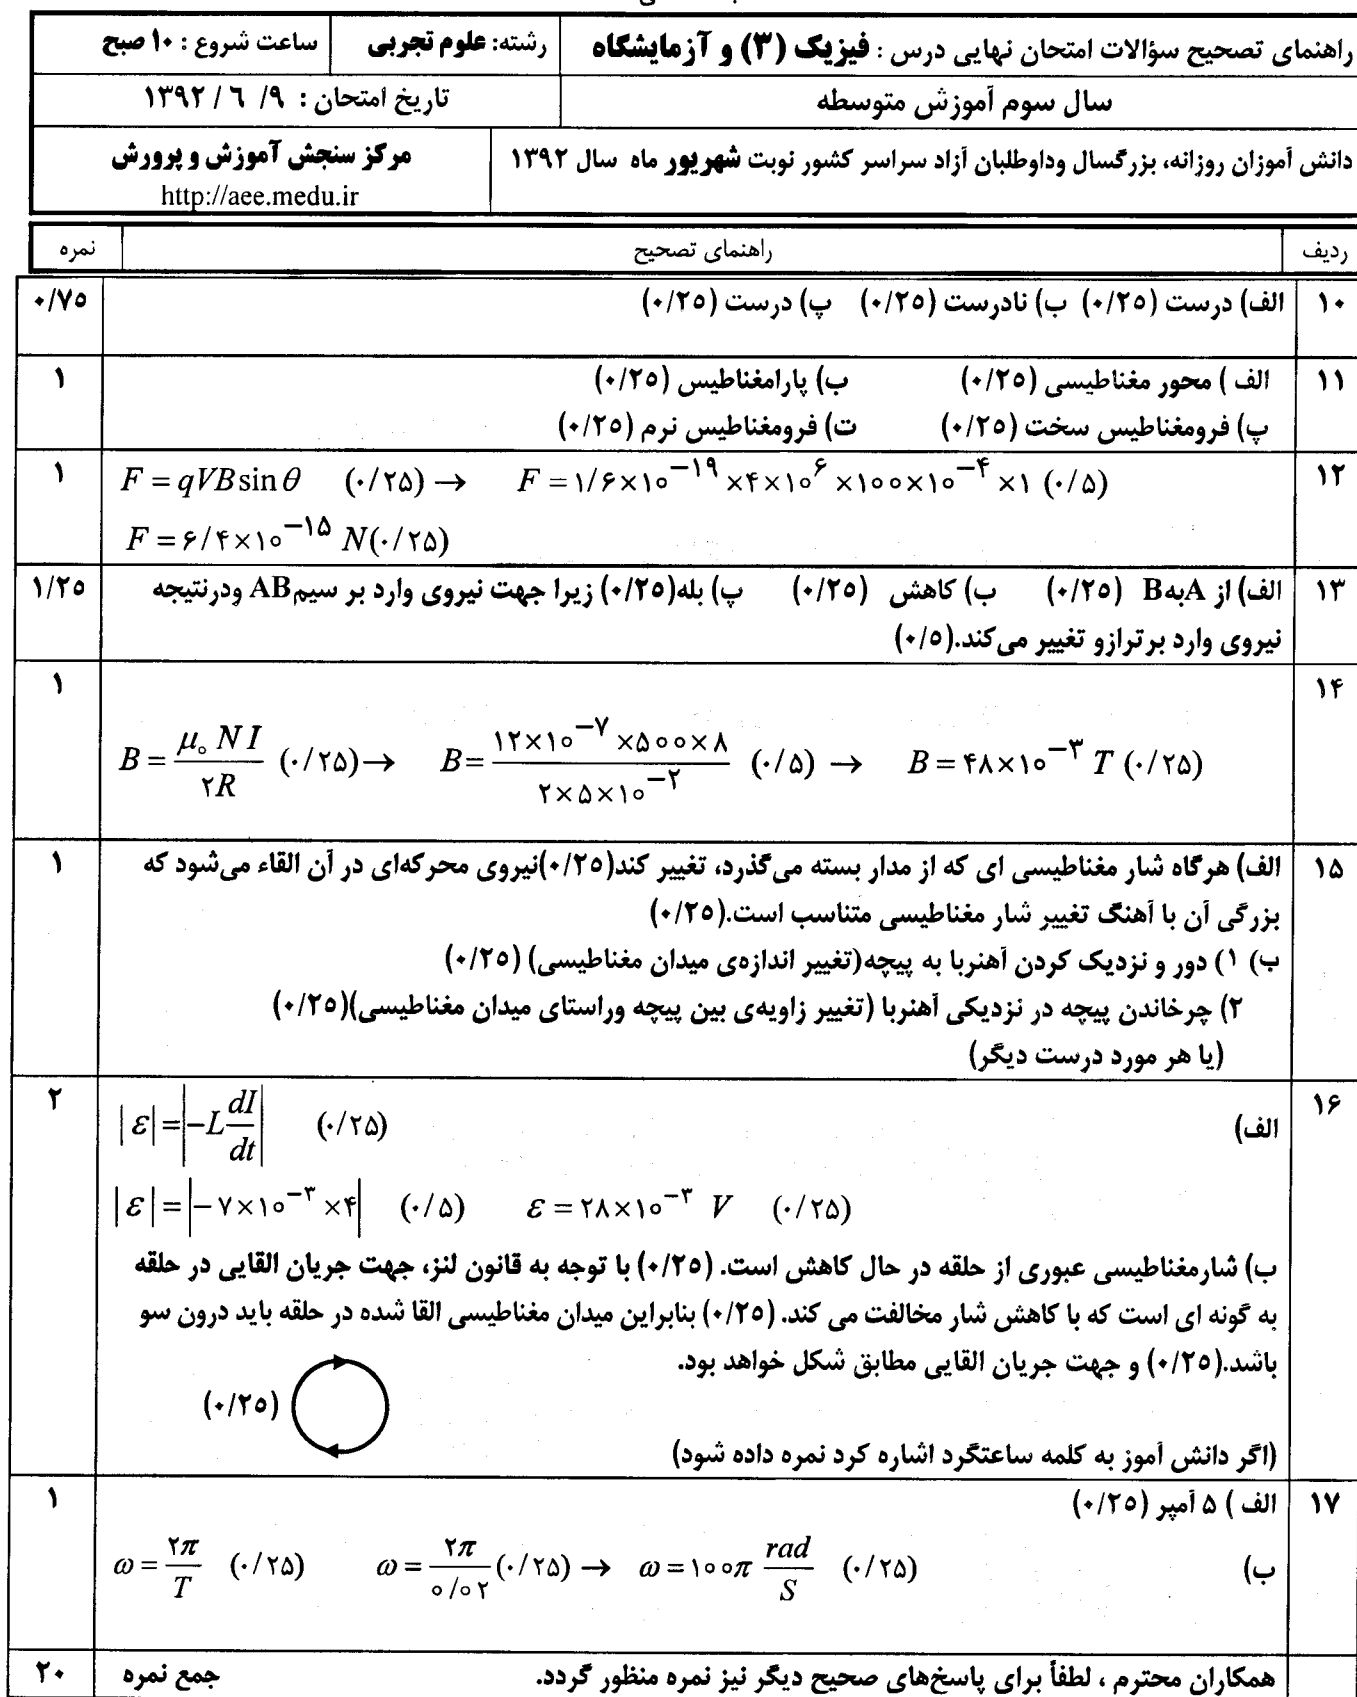 راهنمای تصحیح سؤالات امتحان نهایی درس : فیزیک (۳) و آزمایشگاه رشته: علوم تجربی ساعت شروع : ۱۰ صبح
سال سوم آموزش متوسطه تاریخ امتحان : ۹/ ۶ / ۱۳۹۲
دانش آموزان روزانه، بزرگسال وداوطلبان آزاد سراسر کشور نوبت شهریور ماه سال ۱۳۹۲ مرکز سنجش آموزش و پرورش
http://aee.medu.ir
ردیف راهنمای تصحیح نمره
۱۰ الف) درست (۰/۲۵) ب) نادرست (۰/۲۵) پ) درست (۰/۲۵) ۰/۷۵
۱۱ الف ) محور مغناطیسی (۰/۲۵) ب) پارامغناطیس (۰/۲۵) ۱
پ) فرومغناطیس سخت (۰/۲۵) ت) فرومغناطیس نرم (۰/۲۵)
۱۲ F = qVB sin θ (۰/۲۵) → F = ۱/۶×۱۰^−۱۹ ×۴×۱۰^۶ ×۱۰۰×۱۰^−۴ ×۱ (۰/۵) ۱
F = ۶/۴×۱۰^−۱۵ N(۰/۲۵)
۱۳ الف) از AبهB (۰/۲۵) ب) کاهش (۰/۲۵) پ) بله(۰/۲۵) زیرا جهت نیروی وارد بر سیمAB ودرنتیجه ۱/۲۵
نیروی وارد برترازو تغییر می‌کند.(۰/۵)
۱۴ ۱
B = μ۰ N I / ۲R (۰/۲۵) → B = ۱۲×۱۰^−۷ ×۵۰۰×۸ / ۲×۵×۱۰^−۲ (۰/۵) → B = ۴۸×۱۰^−۳ T (۰/۲۵)
۱۵ الف) هرگاه شار مغناطیسی ای که از مدار بسته می‌گذرد، تغییر کند(۰/۲۵)نیروی محرکه‌ای در آن القاء می‌شود که ۱
بزرگی آن با آهنگ تغییر شار مغناطیسی متناسب است.(۰/۲۵)
ب) ۱) دور و نزدیک کردن آهنربا به پیچه(تغییر اندازه‌ی میدان مغناطیسی) (۰/۲۵)
۲) چرخاندن پیچه در نزدیکی آهنربا (تغییر زاویه‌ی بین پیچه وراستای میدان مغناطیسی)(۰/۲۵)
(یا هر مورد درست دیگر)
۱۶ الف) |ε| = |−L dI/dt| (۰/۲۵) ۲
|ε| = |−۷×۱۰^−۳ ×۴| (۰/۵) ε = ۲۸×۱۰^−۳ V (۰/۲۵)
ب) شارمغناطیسی عبوری از حلقه در حال کاهش است. (۰/۲۵) با توجه به قانون لنز، جهت جریان القایی در حلقه
به گونه ای است که با کاهش شار مخالفت می کند. (۰/۲۵) بنابراین میدان مغناطیسی القا شده در حلقه باید درون سو
باشد.(۰/۲۵) و جهت جریان القایی مطابق شکل خواهد بود.
(۰/۲۵)
(اگر دانش آموز به کلمه ساعتگرد اشاره کرد نمره داده شود)
۱۷ الف ) ۵ آمپر (۰/۲۵) ۱
ب) ω = ۲π / T (۰/۲۵) ω = ۲π / ۰/۰۲ (۰/۲۵) → ω = ۱۰۰π rad / S (۰/۲۵)
همکاران محترم ، لطفاً برای پاسخ‌های صحیح دیگر نیز نمره منظور گردد. جمع نمره ۲۰